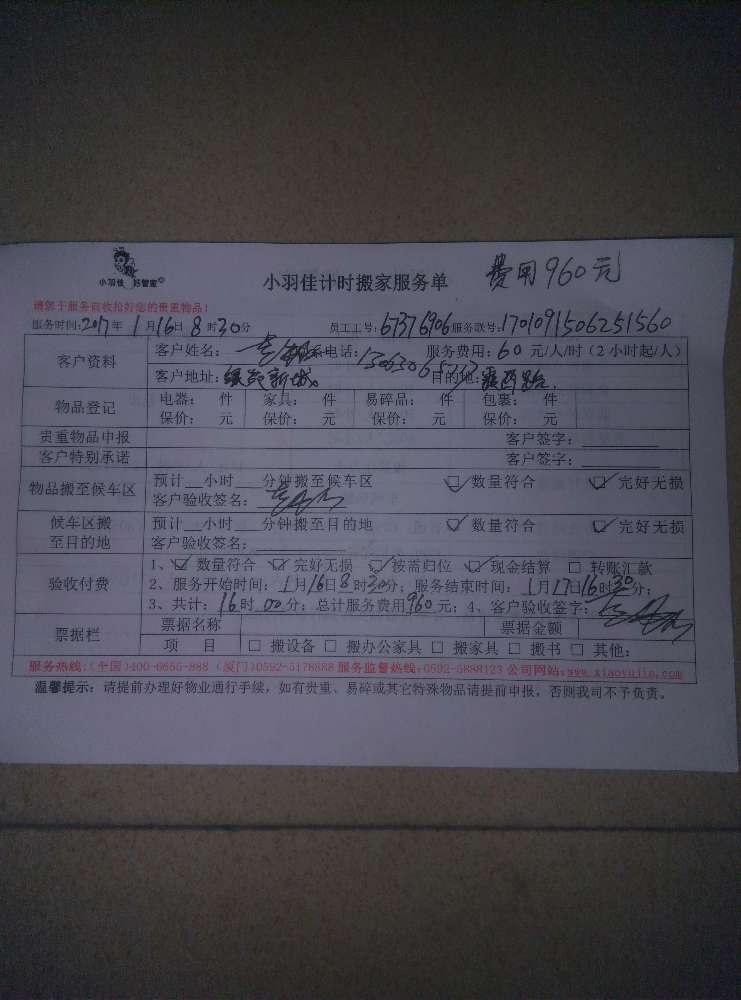 小羽佳 好管家
小羽佳计时搬家服务单 费用960元
请您于服务前收拾好您的贵重物品!
服务时间:2017年1月16日8时30分 员工工号:67376906 服务联号:1701091506251560
客户资料 客户姓名: 电话: 服务费用:60元/人/时(2小时起/人)
客户地址: 新城 目的地:
物品登记 电器: 件 家具: 件 易碎品: 件 包裹: 件
保价: 元 保价: 元 保价: 元 保价: 元
贵重物品申报 客户签字:
客户特别承诺 客户签字:
物品搬至候车区 预计__小时__分钟搬至候车区 ☑数量符合 ☑完好无损
客户验收签名:
候车区搬至目的地 预计__小时__分钟搬至目的地 ☑数量符合 ☑完好无损
客户验收签名:
验收付费 1、☑数量符合 ☑完好无损 ☑按需归位 ☑现金结算 □转账汇款
2、服务开始时间:1月16日8时30分;服务结束时间:1月17日16时30分;
3、共计:16时00分;总计服务费用960元;4、客户验收签字:
票据栏 票据名称 票据金额
项 目 □搬设备 □搬办公家具 □搬家具 □搬书 □其他:
服务热线:(全国)400-6655-888 (厦门)0592-5178888 服务监督热线:0592-5888123 公司网站:www.xiaoyujia.com
温馨提示:请提前办理好物业通行手续,如有贵重、易碎或其它特殊物品请提前申报,否则我司不予负责。